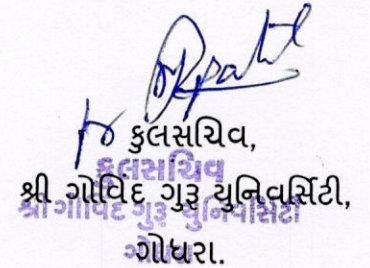 કુલસચિવ,
કુલસચિવ
શ્રી ગોવિંદ ગુરૂ યુનિવર્સિટી,
શ્રી ગોવિંદ ગુરૂ યુનિવર્સિટી
ગોધરા.